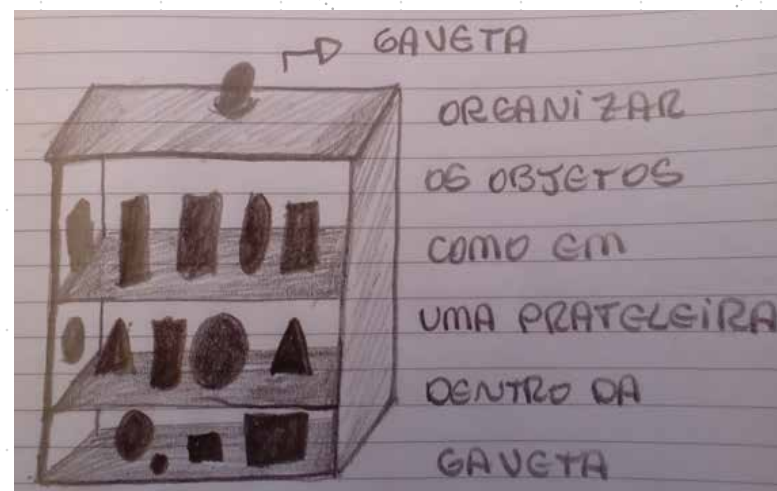 GAVETA
ORGANIZAR
OS OBJETOS
COMO EM
UMA PRATELEIRA
DENTRO DA
GAVETA